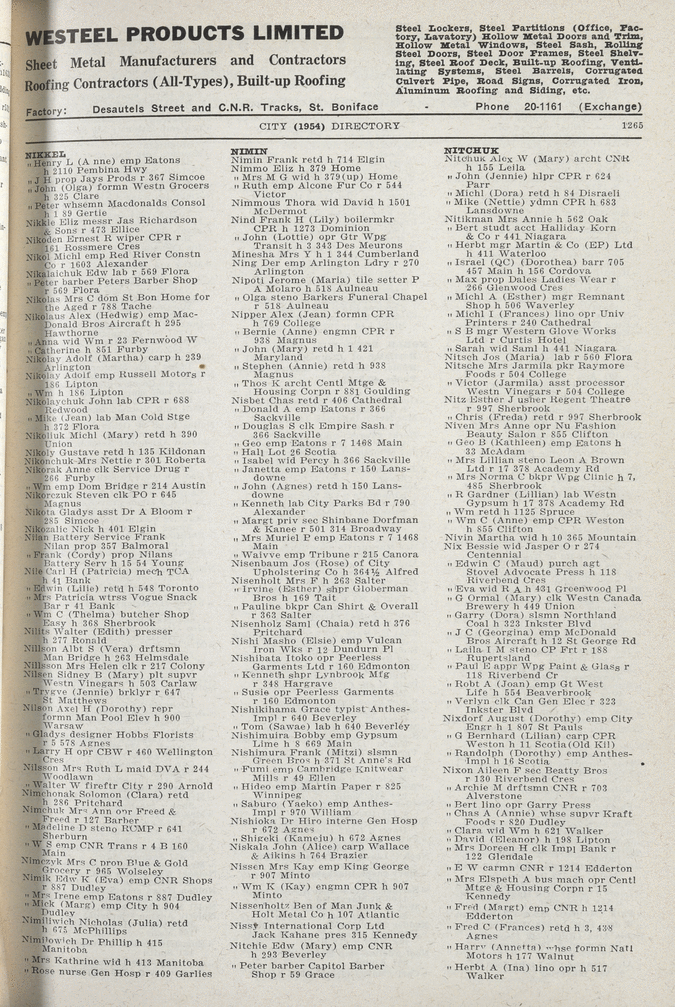 WESTEEL PRODUCTS LIMITED
Sheet Metal Manufacturers and Contractors
Roofing Contractors (All-Types), Built-up Roofing
Steel Lockers, Steel Partitions (Office, Fac-
tory, Lavatory) Hollow Metal Doors and Trim,
Hollow Metal Windows, Steel Sash, Rolling
Steel Doors, Steel Door Frames, Steel Shelv-
ing, Steel Roof Deck, Built-up Roofing, Venti-
lating Systems, Steel Barrels, Corrugated
Culvert Pipe, Road Signs, Corrugated Iron,
Aluminum Roofing and Siding, etc.
Factory: Desautels Street and C.N.R. Tracks, St. Boniface - Phone 20-1161 (Exchange)
CITY (1954) DIRECTORY 1265
NIKKEL
" Henry L (Anne) emp Eatons
h 2110 Pembina Hwy
" J H prop Jays Prods r 367 Simcoe
" John (Olga) formn Westn Grocers
h 325 Clare
" Peter whsemn Macdonalds Consol
h 1 89 Gertie
Nikkie Eliz messr Jas Richardson
& Sons r 473 Ellice
Nikoden Ernest R wiper CPR r
161 Rossmere Cres
Nikol Michl emp Red River Constn
Co r 1603 Alexander
Nikolaichuk Edw lab r 569 Flora
" Peter barber Peters Barber Shop
r 569 Flora
Nikolas Mrs C dom St Bon Home for
the Aged r 788 Tache
Nikolaus Alex (Hedwig) emp Mac-
Donald Bros Aircraft h 295
Hawthorne
" Anna wid Wm r 23 Fernwood W
" Catherine h 851 Furby
Nikolay Adolf (Martha) carp h 239
Arlington
Nikolay Adolf emp Russell Motors r
186 Lipton
" Wm h 186 Lipton
Nikolaychuk John lab CPR r 688
Redwood
" Mike (Jean) lab Man Cold Stge
h 372 Flora
Nikoliuk Michl (Mary) retd h 390
Union
Nikoly Gustave retd h 135 Kildonan
Nikonchuk Mrs Nettie r 301 Roberta
Nikorak Anne clk Service Drug r
266 Furby
" Wm emp Dom Bridge r 214 Austin
Nikorczuk Steven clk PO r 645
Magnus
Nikota Gladys asst Dr A Bloom r
285 Simcoe
Nikozalic Nick h 401 Elgin
Nilan Battery Service Frank
Nilan prop 357 Balmoral
" Frank (Cordy) prop Nilans
Battery Serv h 15 54 Young
Nile Carl H (Patricia) mech TCA
h 41 Bank
" Edwin (Lilie) retd h 548 Toronto
" Mrs Patricia wtrss Vogue Snack
Bar r 41 Bank
" Wm C (Thelma) butcher Shop
Easy h 368 Sherbrook
Nilits Walter (Edith) presser
h 277 Ronald
Nillson Albt S (Vera) drftsmn
Man Bridge h 263 Helmsdale
Nillsson Mrs Helen clk r 217 Colony
Nilsen Sidney B (Mary) plt supvr
Westn Vinegars h 503 Carlaw
" Trygve (Jennie) brklyr r 647
St Matthews
Nilson Axel H (Dorothy) repr
formn Man Pool Elev h 900
Warsaw
" Gladys designer Hobbs Florists
r 5 578 Agnes
" Larry H opr CBW r 460 Wellington
Cres
Nilsson Mrs Ruth L maid DVA r 244
Woodlawn
" Walter W fireftr City r 290 Arnold
Nimchonak Solomon (Clara) retd
h 286 Pritchard
Nimchuk Mrs Ann opr Freed &
Freed r 127 Barber
" Madeline D steno RCMP r 641
Sherburn
" W S emp CNR Trans r 4 B 160
Main
Nimczyk Mrs C prop Blue & Gold
Grocery r 965 Wolseley
Nimik Edw K (Eva) emp CNR Shops
r 887 Dudley
" Mrs Irene emp Eatons r 887 Dudley
" Mick (Marg) emp City h 904
Dudley
Nimiliwich Nicholas (Julia) retd
h 675 McPhillips
Nimilowich Dr Phillip h 415
Manitoba
" Mrs Kathrine wid h 413 Manitoba
" Rose nurse Gen Hosp r 409 Garlies
NIMIN
Nimin Frank retd h 714 Elgin
Nimmo Eliz h 379 Home
" Mrs M G wid h 379(up) Home
" Ruth emp Alcone Fur Co r 544
Victor
Nimmous Thora wid David h 1501
McDermot
Nind Frank H (Lily) boilermkr
CPR h 1273 Dominion
" John (Lottie) opr Gtr Wpg
Transit h 3 343 Des Meurons
Minesha Mrs Y h 1 344 Cumberland
Ning Der emp Arlington Ldry r 270
Arlington
Nipoti Jerome (Maria) tile setter P
A Molaro h 518 Aulneau
" Olga steno Barkers Funeral Chapel
r 518 Aulneau
Nipper Alex (Jean) formn CPR
h 769 College
" Bernie (Anne) engmn CPR r
938 Magnus
" John (Mary) retd h 1 421
Maryland
" Stephen (Annie) retd h 938
Magnus
" Thos K archt Centl Mtge &
Housing Corpn r 881 Goulding
Nisbet Chas retd r 406 Cathedral
" Donald A emp Eatons r 366
Sackville
" Douglas S clk Empire Sash r
366 Sackville
" Geo emp Eatons r 7 1468 Main
" Hall Lot 26 Scotia
" Isabel wid Percy h 366 Sackville
" Janetta emp Eatons r 150 Lans-
downe
" John (Agnes) retd h 150 Lans-
downe
" Kenneth lab City Parks Bd r 790
Alexander
" Margt priv sec Shinbane Dorfman
& Kanee r 501 314 Broadway
" Mrs Muriel P emp Eatons r 7 1468
Main
" Waivve emp Tribune r 215 Canora
Nisenbaum Jos (Rose) of City
Upholstering Co h 364½ Alfred
Nisenholt Mrs F h 263 Salter
" Irvine (Esther) shpr Globerman
Bros h 169 Tait
" Pauline bkpr Can Shirt & Overall
r 363 Salter
Nisenholz Saml (Chaia) retd h 376
Pritchard
Nishi Masho (Elsie) emp Vulcan
Iron Wks r 12 Dundurn Pl
Nishibata Itoko opr Peerless
Garments Ltd r 160 Edmonton
" Kenneth shpr Lynbrook Mfg
r 348 Hargrave
" Susie opr Peerless Garments
r 160 Edmonton
Nishikihama Grace typist Anthes-
Impl r 640 Beverley
" Tom (Sawae) lab h 640 Beverley
Nishimura Bobby emp Gypsum
Lime h 8 669 Main
Nishimura Frank (Mitzi) slsmn
Green Bros h 371 St Anne's Rd
" Fumi emp Cambridge Knitwear
Mills r 49 Ellen
" Hideo emp Martin Paper r 825
Winnipeg
" Saburo (Yaeko) emp Anthes-
Impl r 970 William
Nishioka Dr Hiro interne Gen Hosp
r 672 Agnes
" Shigeki (Kameju) h 672 Agnes
Niskala John (Alice) carp Wallace
& Aikins h 764 Brazier
Nissen Mrs Kay emp King George
r 907 Minto
" Wm K (Kay) engmn CPR h 907
Minto
Nissenholtz Ben of Man Junk &
Holt Metal Co h 107 Atlantic
Nissy International Corp Ltd
Jack Kahane pres 315 Kennedy
Nitchie Edw (Mary) emp CNR
h 293 Beverley
" Peter barber Capitol Barber
Shop r 59 Grace
NITCHUK
Nitchuk Alex W (Mary) archt CNR
h 155 Leila
" John (Jennie) hlpr CPR r 624
Parr
" Michl (Dora) retd h 84 Disraeli
" Mike (Nettie) ydmn CPR h 683
Lansdowne
Nitikman Mrs Annie h 562 Oak
" Bert studt acct Halliday Korn
& Co r 441 Niagara
" Herbt mgr Martin & Co (EP) Ltd
h 411 Waterloo
" Israel (QC) (Dorothea) barr 705
457 Main h 156 Cordova
" Max prop Dales Ladies Wear r
266 Glenwood Cres
" Michl A (Esther) mgr Remnant
Shop h 506 Waverley
" Michl I (Frances) lino opr Univ
Printers r 240 Cathedral
" S B mgr Western Glove Works
Ltd r Curtis Hotel
" Sarah wid Saml h 441 Niagara
Nitsch Jos (Maria) lab r 560 Flora
Nitsche Mrs Jarmila pkr Raymore
Foods r 504 College
" Victor (Jarmila) asst processor
Westn Vinegars r 504 College
Nitz Esther J usher Regent Theatre
r 997 Sherbrook
" Chris (Freda) retd r 997 Sherbrook
Niven Mrs Anne opr Nu Fashion
Beauty Salon r 855 Clifton
" Geo B (Kathleen) emp Eatons h
33 McAdam
" Mrs Lillian steno Leon A Brown
Ltd r 17 378 Academy Rd
" Mrs Norma C bkpr Wpg Clinic h 7,
485 Sherbrook
" R Gardner (Lillian) lab Westn
Gypsum h 17 378 Academy Rd
" Wm retd h 1125 Spruce
" Wm C (Anne) emp CPR Weston
h 855 Clifton
Nivin Martha wid h 10 365 Mountain
Nix Bessie wid Jasper O r 274
Centennial
" Edwin C (Maud) purch agt
Stovel Advocate Press h 118
Riverbend Cres
" Eva wid R A h 431 Greenwood Pl
" G Ormal (Mary) clk Westn Canada
Brewery h 449 Union
" Garry (Dora) slsmn Northland
Coal h 323 Inkster Blvd
" J C (Georgina) emp McDonald
Bros Aircraft h 12 St George Rd
" Laila I M steno CP Frt r 188
Rupertsland
" Paul E appr Wpg Paint & Glass r
118 Riverbend Cr
" Robt A (Joan) emp Gt West
Life h 554 Beaverbrook
" Verlyn clk Can Gen Elec r 323
Inkster Blvd
Nixdorf August (Dorothy) emp City
Engr h 1 807 St Pauls
" G Bernhard (Lilian) carp CPR
Weston h 11 Scotia(Old Kil)
" Randolph (Dorothy) emp Anthes-
Impl h 16 Scotia
Nixon Aileen F sec Beatty Bros
r 130 Riverbend Cres
" Archie M drftsmn CNR r 703
Alverstone
" Bert lino opr Garry Press
" Chas A (Annie) whse supvr Kraft
Foods r 820 Dudley
" Clara wid Wm h 621 Walker
" David (Eleanor) h 198 Lipton
" Mrs Doreen H clk Impl Bank r
122 Glendale
" E W carmn CNR r 1214 Edderton
" Mrs Elspeth A bus mach opr Centl
Mtge & Housing Corpn r 15
Kennedy
" Fred (Margt) emp CNR h 1214
Edderton
" Fred C (Frances) retd h 3, 438
Agnes
" Harry (Annetta) whse formn Natl
Motors h 177 Walnut
" Herbt A (Ina) lino opr h 517
Walker